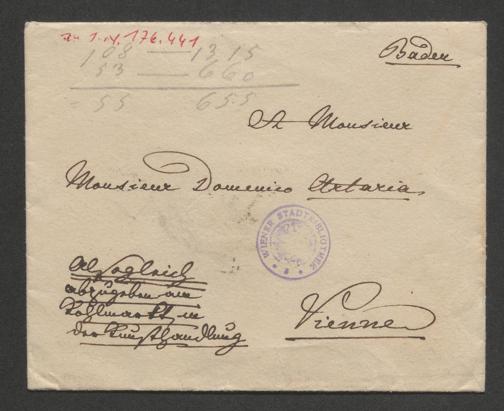 zu I.N. 176.441
Baden
108 — 1315
53 — 660
= 55 655
A Monsieur
Monsieur Domenico Artaria
WIENER STADTBIBLIOTHEK
Alsogleich
abzugeben am
Kohlmarkt in
der Kunsthandlung
Vienne